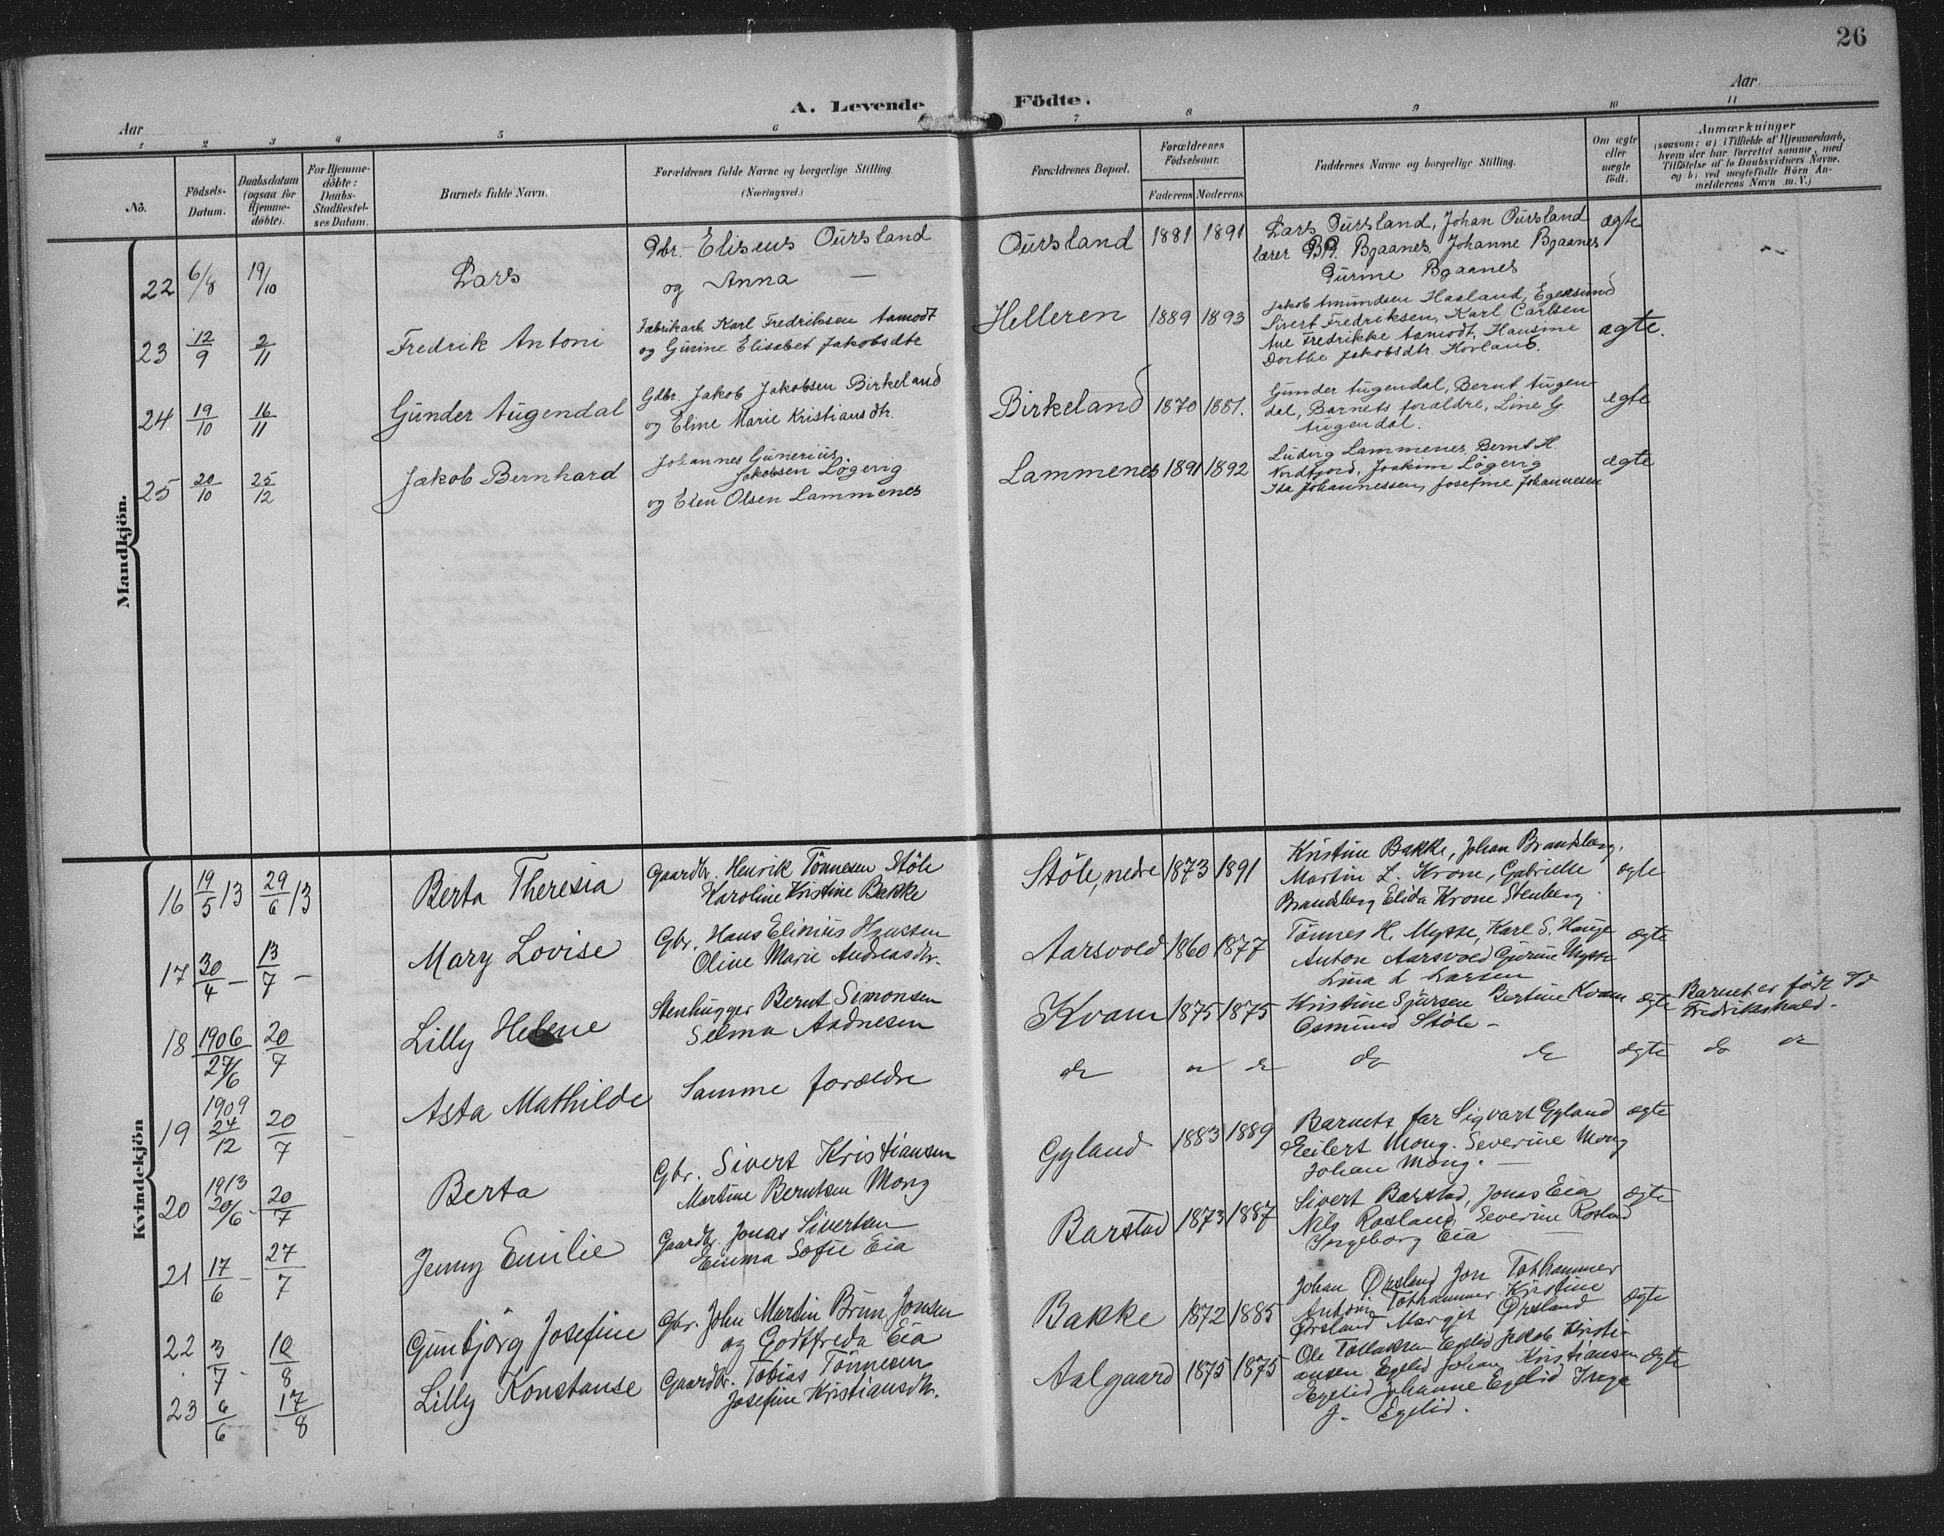 26
A. Levende Födte.
Aar
Aar
1 2 3 4 5 6 7 8 9 10 11
No.
Födsels-
Datum.
Daabsdatum
(ogsaa for
Hjemme-
döbte).
For Hjemme-
döbte:
Daabs-
Stadfæstel-
ses Datum.
Barnets fulde Navn.
Forældrenes fulde Navne og borgerlige Stilling
(Næringsvei.)
Forældrenes Bopæl.
Forældrenes
Födselsaar.
Faderens Moderens
Faddernes Navne og borgerlige Stilling.
Om ægte
eller
uægte
födt.
Anmærkninger
(saasom: a) i Tilfælde af Hjemmedaab,
hvem der har forrettet samme, med
Tilföielse af to Daabsvidners Navne,
og b) ved uægtefödte Börn An-
melderens Navn m. V.)
Mandkjön.
22 6/8 19/10 Lars
Gbr. Eliseus Oursland
og Anna —
Oursland 1881 1891
Lars Oursland, Johan Oursland
lærer Bgaanes, Johanne Bgaanes
Gurine Bgaanes
ægte
23 12/9 2/11 Fredrik Antoni
Fabrikarb. Karl Fredriksen Aamodt
og Gurine Elisabet Jakobsdtr
Helleren 1889 1893
Jakob Amundsen Hasland, Egersund
Sivert Fredriksen, Karl Carlsen
Ane Fredrikke Aamodt, Hansine
Dorthe Jakobsdtr. Hovland.
ægte.
24 19/10 16/11 Gunder Augendal
Gdbr. Jakob Jakobsen Birkeland
og Eline Marie Kristiansdtr.
Birkeland 1870 1881.
Gunder Augendal, Bernt Augen-
dal, Barnets forældre, Line G.
Augendal.
ægte
25 20/10 25/12 Jakob Bernhard
Johannes Gunerius
Jakobsen Lögevig
og Elen Olsen Lammenes
Lammenes 1891 1892
Ludvig Lammenes, Bernt H.
Nordfjord, Joakim Lögevig
Ida Johannessen, Josefine Johannesen
ægte
Kvindekjön
16 19/5 13 29/6 13 Berta Theresia
Gaardbr. Henrik Tönnesen Stöle
Karoline Kristine Bakke
Stöle, nedre 1873 1891
Kristine Bakke, Johan Brandsberg,
Martin L. Krone, Gabrielle
Brandsberg Elida Krone Stenberg.
ægte
17 30/4 – 13/7 – Mary Lovise
Gbr. Hans Elinius Hanssen
Oline Marie Andreasdtr.
Aarsvold 1860 1877
Tönnes H. Mysse, Karl S. Hauge
Anton Aarsvold Gurine Mysse
Lina L. Larsen
ægte
18 1906 27/6 20/7 Lilly Helene
Stenhugger Bernt Simonsen
Selma Aadnesen
Kvam 1875 1875
Kristine Sjursen Bertine Kvam
Osmund Stöle –
ægte
Barnet er födt I
Fredrikshald.
19 1909 24/12 20/7 Asta Mathilde
Samme forældre
do do do do do ægte do do
20 1913 20/6 – 20/7 Berta
Gbr. Sivert Kristiansen
Martine Berntsen Mong
Gyland 1883 1889
Barnets far Sigvart Gyland
Eilert Mong. Severine Mong
Johan Mong. —
ægte
21 17/6 – 27/7 Jenny Emilie
Gaardbr. Jonas Sivertsen
Emma Sofie Eia
Barstad 1873 1887
Sivert Barstad, Jonas Eia
Nils Rosland, Severine Rosland
Ingeborg Eia —
ægte
22 3/7 – 10/8 Gunbjörg Josefine
Gbr. John Martin Brun Jonsen
og Godtfreda Eia
Bakke 1872 1885
Johan Örsland Jon Tothammer
Antoni Tothammer, Kirstine
Örsland Marget Örsland
ægte
23 6/6 – 17/8 Lilly Konstanse
Gaardbr. Tobias Tönnesen
Josefine Kristiansdtr.
Aalgaard 1875 1875
Ole Tollaksen Egelid Jakob Kristi-
ansen Egelid Johan Kristiansen
Egelid Johanne Egelid Inga
J. Egelid.
ægte